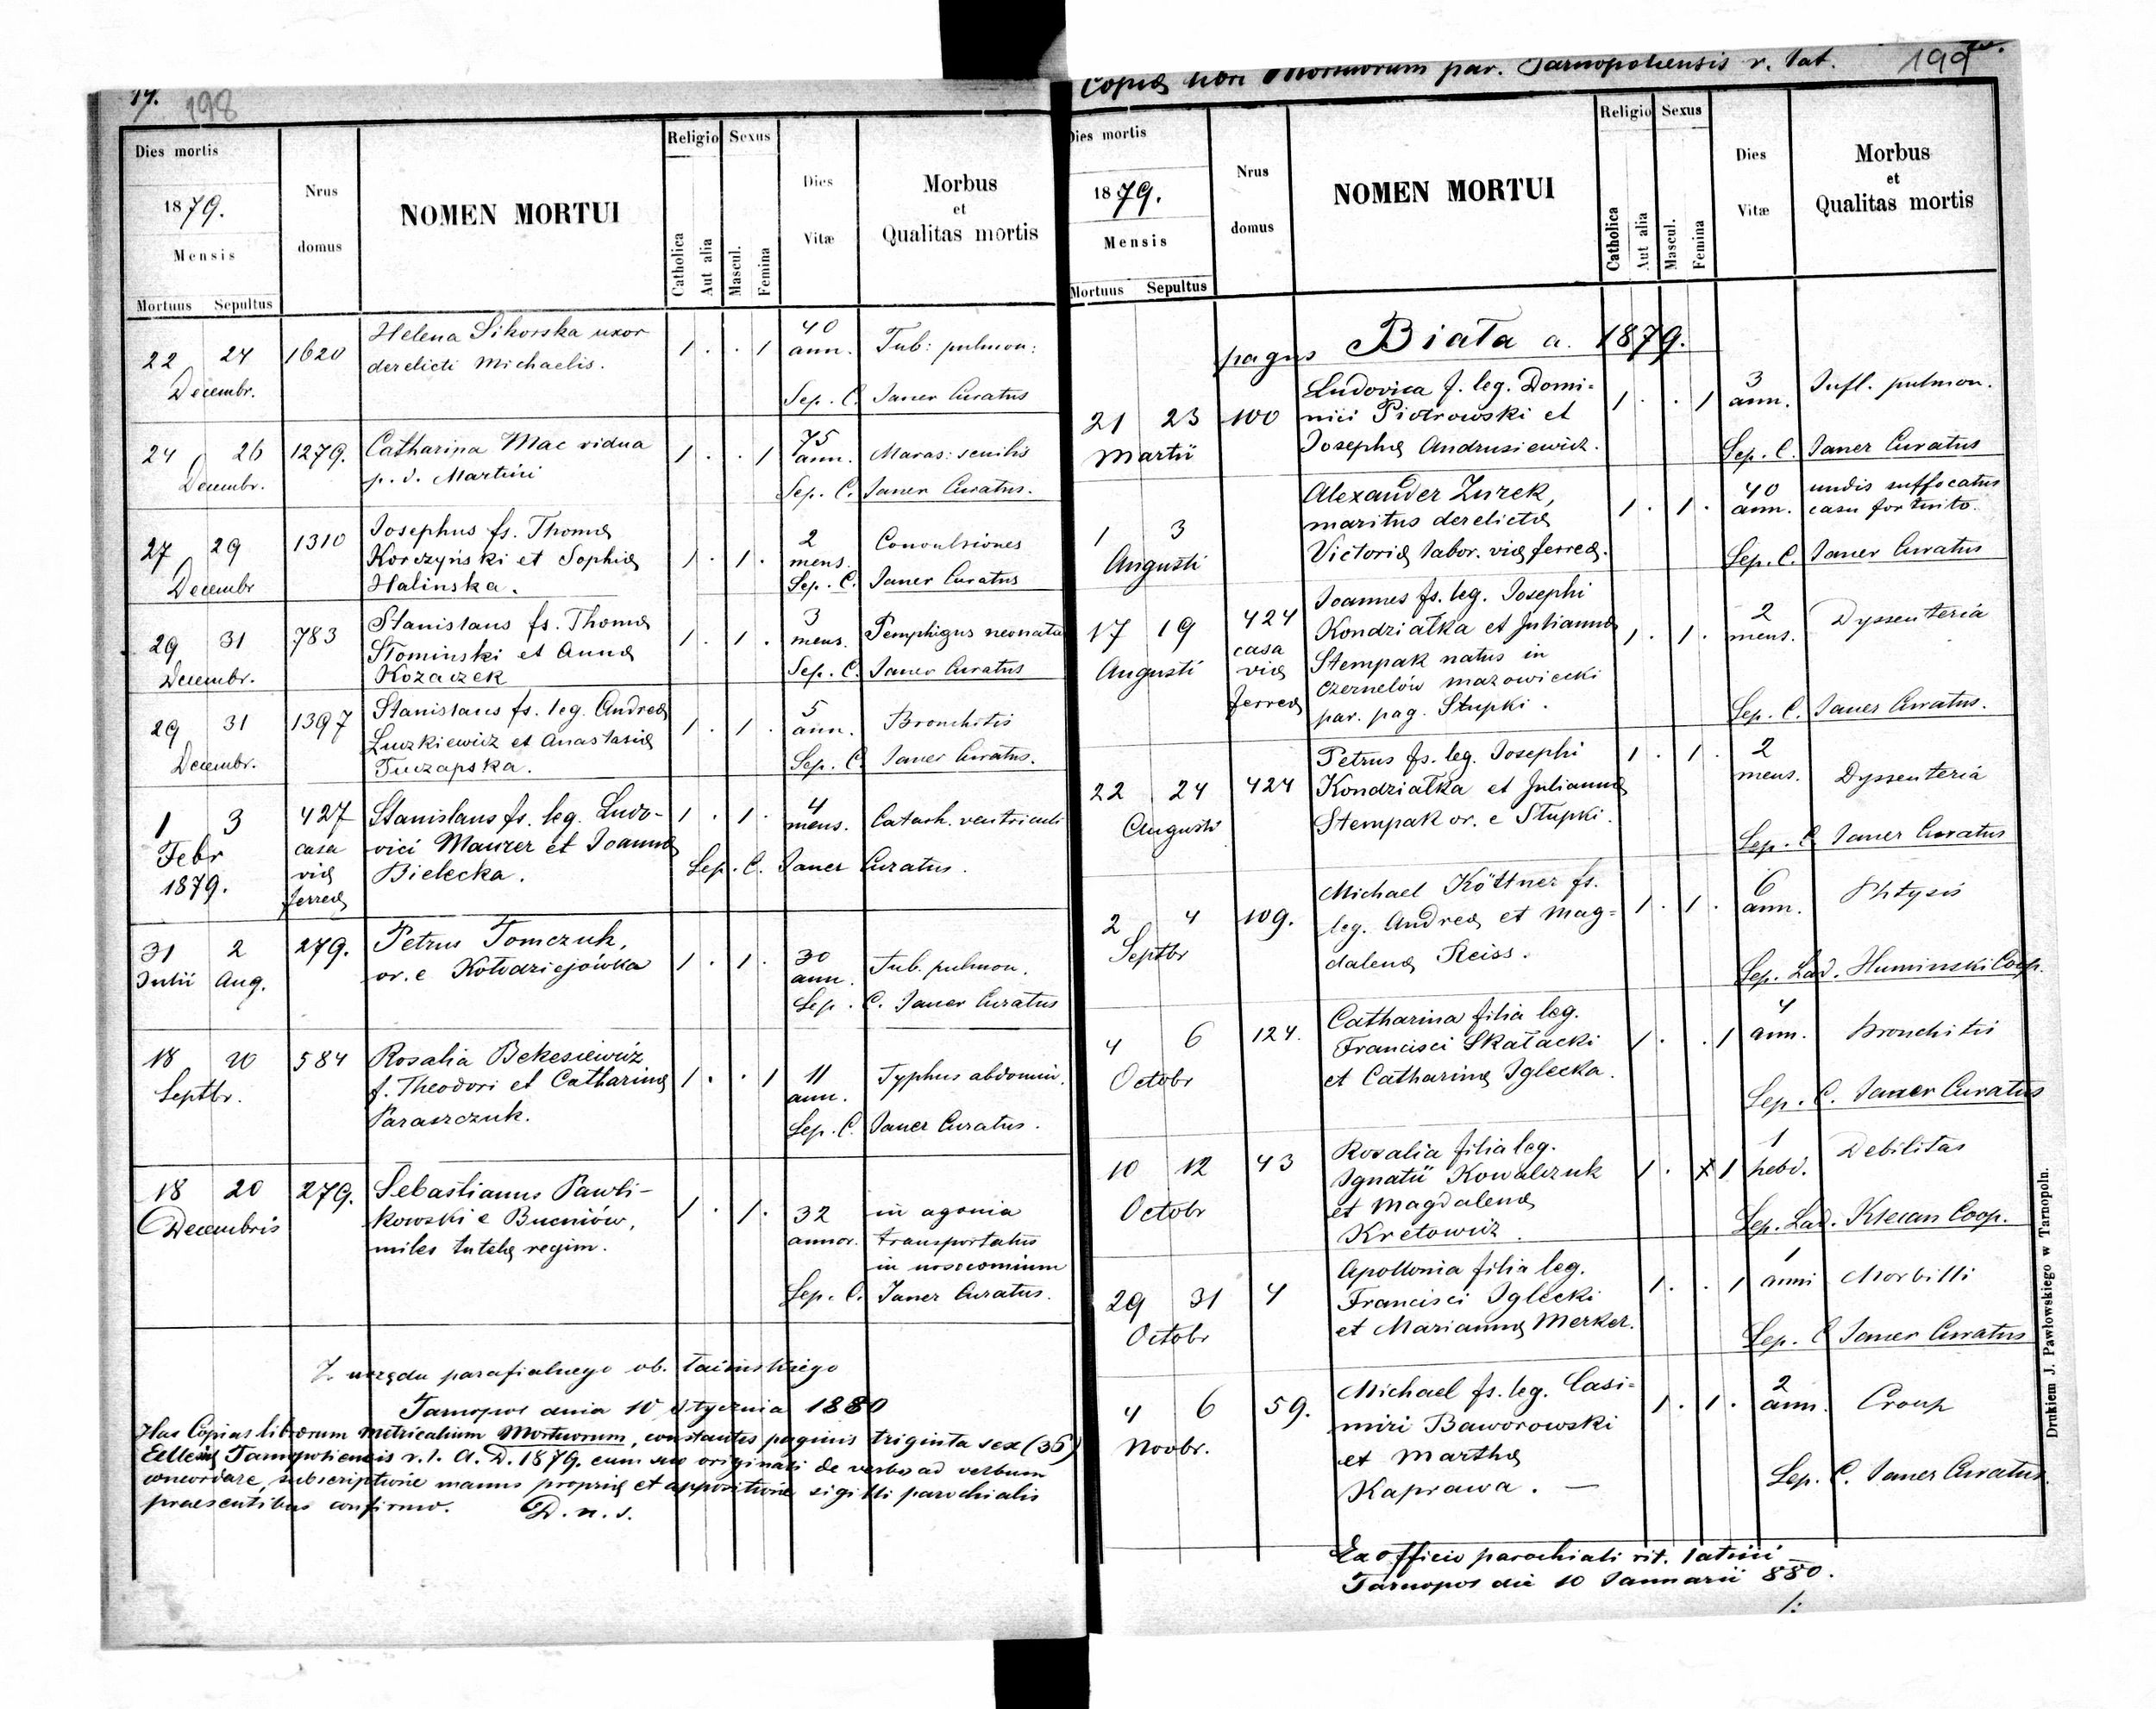 17. 198
Dies mortis
1879.
Mensis
Mortuus Sepultus
Nrus
domus
NOMEN MORTUI
Religio
Catholica
Aut alia
Sexus
Mascul.
Femina
Dies
Vitæ
Morbus
et
Qualitas mortis
22 24 1620 Helena Sikorska uxor 1 . . 1 40
Decembr. derelicti Michaelis. ann. Tub: pulmon:
Sep. C. Janer Curatus
24 26 1279. Catharina Mac vidua 1 . . 1 75
Decembr. p. d. Martini ann. Maras: senilis
Sep. C. Janer Curatus.
27 29 1310 Josephus fs. Thomæ 2
Korczyński et Sophiæ 1 . 1 . mens. Convulsiones
Decembr Halinska. Sep. C. Janer Curatus
29 31 783 Stanislaus fs. Thomæ 3
Słominski et Annæ 1 . 1 . mens. Pemphigus neonatu
Decembr. Kozaczek Sep. C. Janer Curatus
29 31 1397 Stanislaus fs. leg. Andreæ 5
Łuczkiewicz et Anastasiæ 1 . 1 . ann. Bronchitis
Decembr. Tuczapska. Sep. C. Janer Curatus.
1 3 427 Stanislaus fs. leg. Ludo- 1 . 1 . 4
Febr casa vici Maurer et Joannæ mens. Catarh. ventriculi
1879. viæ Bielecka. Sep. C. Janer Curatus.
ferreæ
31 2 279. Petrus Tomczuk, 30
Julii Aug. or. e Kołodziejówka 1 . 1 . ann. Tub. pulmon.
Sep. C. Janer Curatus
18 20 584 Rosalia Bekesiewicz
Septbr. f. Theodori et Catharinæ 1 . . 1 11 Typhus abdomin.
Paraszczuk. ann.
Sep. C. Janer Curatus.
18 20 279. Sebastianus Pawli-
Decembris kowski e Bucniów, 1 . 1 . 32 in agonia
miles tutelæ regim. annor. transportatus
in nosocomium
Sep. C. Janer Curatus.
Z urzędu parafialnego ob. łacińskiego
Tarnopol dnia 10 stycznia 1880
Has Copias librorum metricalium Mortuorum, constantes paginis triginta sex (36)
Tarnopoliensis r. l. A. D. 1879. cum suo originali de verbo ad verbum
concordare, subscriptione manus propriæ et appositione sigilli parochialis
praesentibus confirmo. D. n. s.
Copia libri Mortuorum par. Tarnopoliensis r. lat. 199
Dies mortis
1879.
Mensis
Mortuus Sepultus
Nrus
domus
NOMEN MORTUI
Religio
Catholica
Aut alia
Sexus
Mascul.
Femina
Dies
Vitæ
Morbus
et
Qualitas mortis
pagus Biała a. 1879.
Ludovica f. leg. Domi- 3 Infl. pulmon.
21 23 100 nici Piotrowski et 1 . . 1 ann.
Martii Josephæ Andrusiewicz. Sep. C. Janer Curatus
Alexander Zurek, 40 undis suffocatus
1 3 maritus derelictæ 1 . 1 . ann. casu fortuito.
Augusti Victoriæ labor. viæ ferreæ. Sep. C. Janer Curatus
Joannes fs. leg. Josephi
17 19 424 Kondziałka et Juliannæ 1 . 1 . 2 Dyssenteria
Augusti casa Stempak natus in mens.
viæ Czernelów mazowiecki
ferreæ par. pag. Stupki. Sep. C. Janer Curatus.
Petrus fs. leg. Josephi 1 . 1 . 2
22 24 424 Kondziałka et Juliannæ mens. Dyssenteria
Augusti Stempak or. e Stupki.
Sep. C Janer Curatus
Michael Köttner fs. 6 Phtysis
2 4 109. leg. Andreæ et Mag- 1 . 1 . ann.
Septbr dalenæ Reiss.
Sep. Lad. Huminski Coop.
Catharina filia leg. 4
4 6 124. Francisci Skałacki 1 . . 1 ann. Bronchitis
Octobr et Catharinæ Iglecka.
Sep. C. Janer Curatus
Rosalia filia leg. 1 Debilitas
10 12 43 Ignatii Kowalczuk 1 . x 1 hebd.
Octobr et Magdalenæ
Kretowicz. Sep. Lad. Klecan Coop.
Apollonia filia leg. 1
29 31 4 Francisci Iglecki 1 . . 1 anni Morbilli
Octobr et Mariannæ Merker.
Sep. C Janer Curatus
Michael fs. leg. Casi- 2
4 6 59. miri Baworowski 1 . 1 . ann. Croup
Novbr. et Marthæ
Kaprawa. — Sep. C. Janer Curatus.
Ex officio parochiali rit. latini
Tarnopol die 10 Januarii 880.
Drukiem J. Pawłowskiego w Tarnopolu.